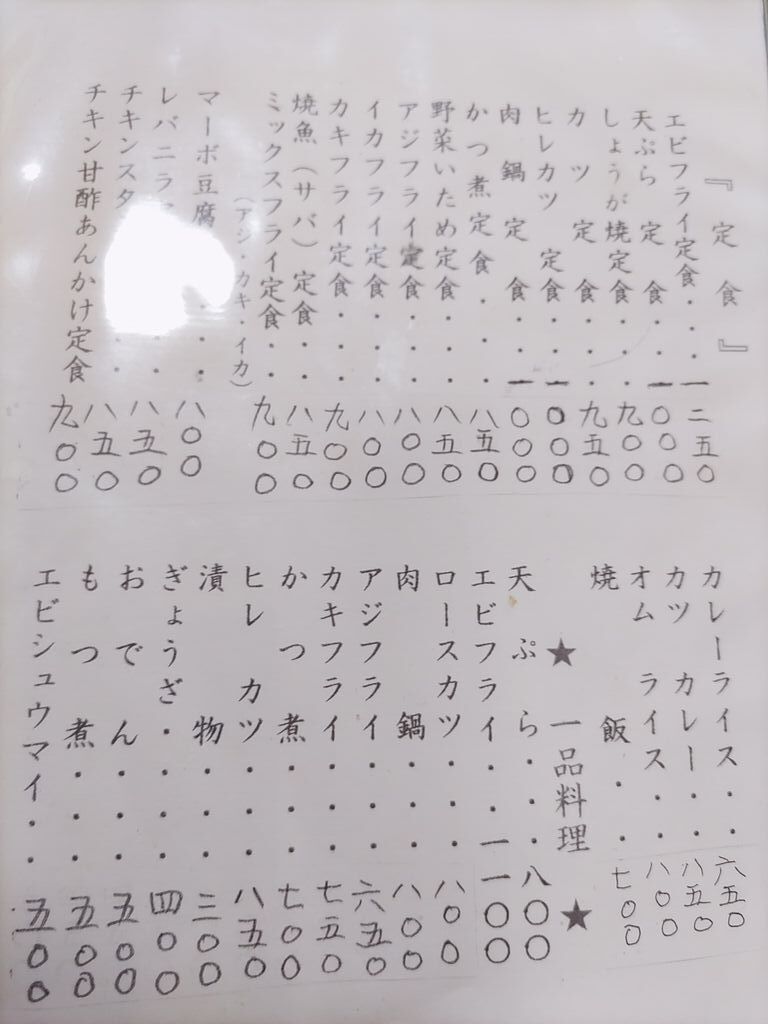 『定食』
エビフライ定食・・・一二五〇
天ぷら定食・・一〇〇〇
しょうが焼定食・・・九〇〇
カツ定食・・・九五〇
ヒレカツ定食・・一〇〇〇
肉鍋定食・・一〇〇〇
かつ煮定食・・・八五〇
野菜いため定食・・・八五〇
アジフライ定食・・・八〇〇
イカフライ定食・・・八〇〇
カキフライ定食・・・九〇〇
焼魚（サバ）定食・・・八五〇
ミックスフライ定食・・九〇〇
（アジ・カキ・イカ）
マーボ豆腐・・・八〇〇
レバニラ・・八五〇
チキンスタ・・八五〇
チキン甘酢あんかけ定食九〇〇
カレーライス・・・六五〇
カツカレー・・・八五〇
オムライス・・・八〇〇
焼飯・・七〇〇
★一品料理★
天ぷら・・・八〇〇
エビフライ・・・一一〇〇
ロースカツ・・・八〇〇
肉鍋・・・八〇〇
アジフライ・・・六五〇
カキフライ・・・七五〇
かつ煮・・・七〇〇
ヒレカツ・・・八五〇
漬物・・・三〇〇
ぎょうざ・・・・四〇〇
おでん・・・五〇〇
もつ煮・・・五〇〇
エビシュウマイ・・五〇〇